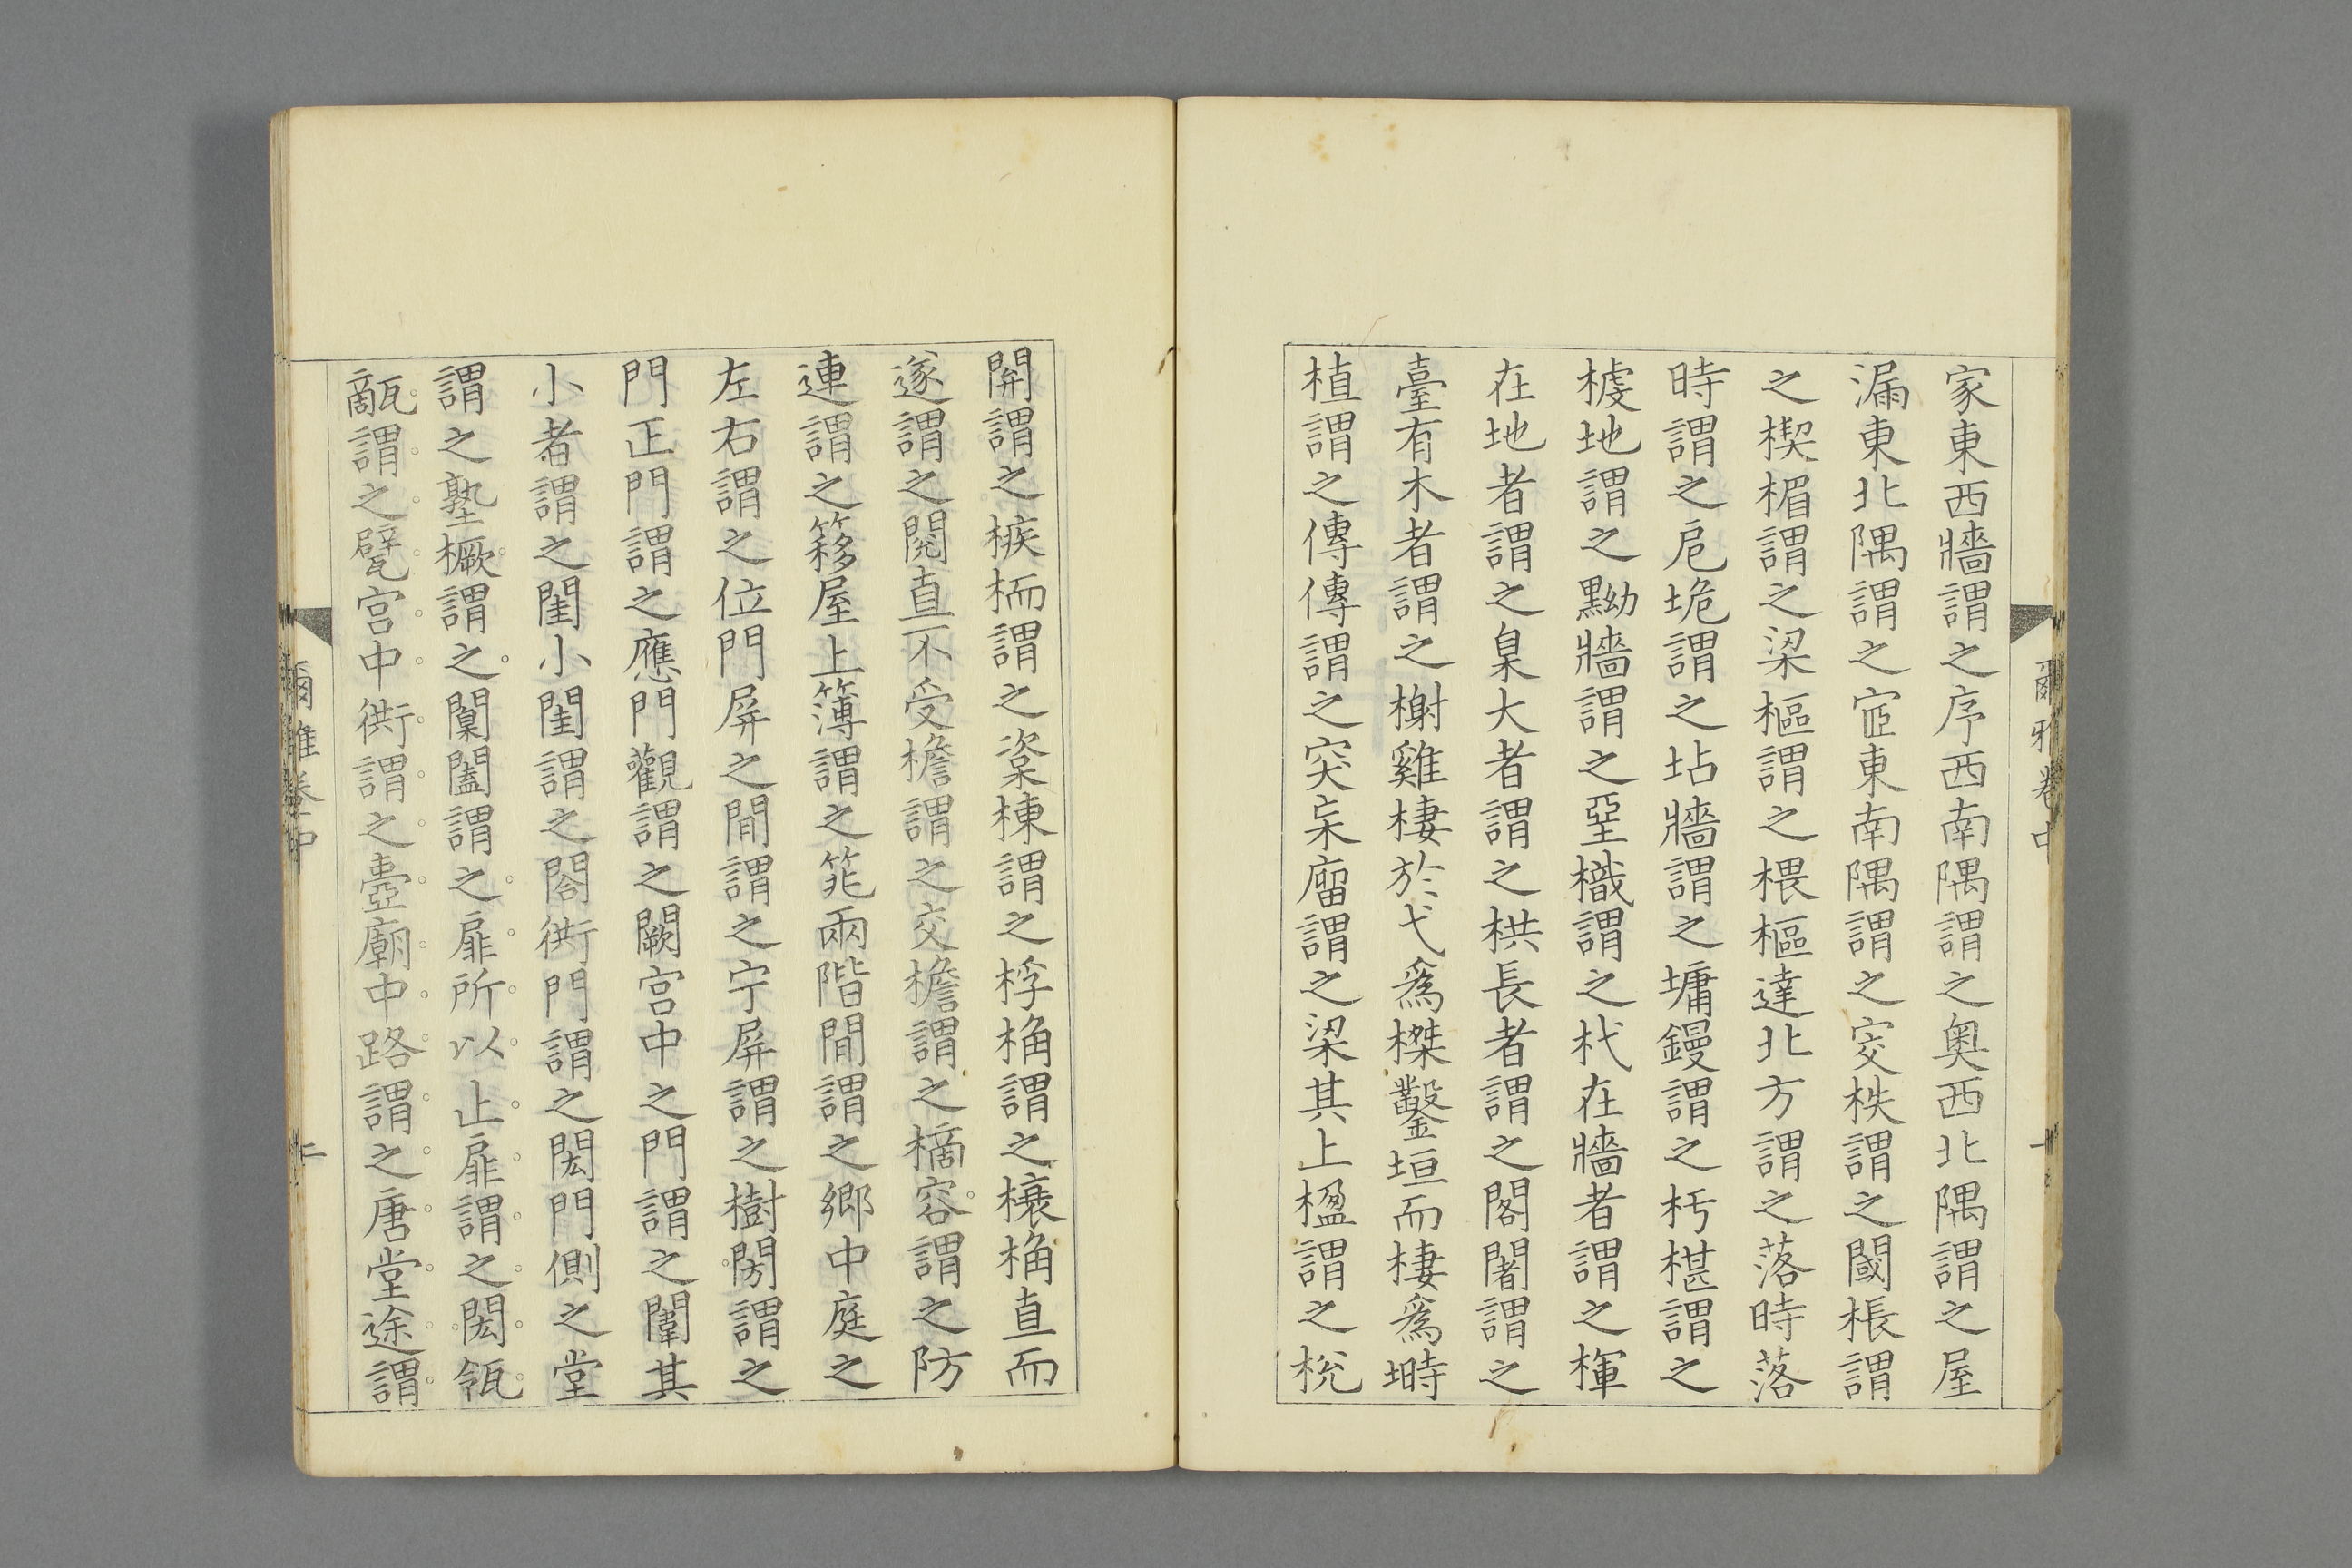 家東西牆謂之序西南隅謂之奧西北隅謂之屋
漏東北隅謂之宧東南隅謂之窔柣謂之閾棖謂
之楔楣謂之梁樞謂之椳樞達北方謂之落時落
時謂之戹垝謂之坫牆謂之墉鏝謂之杇椹謂之
榩地謂之黝牆謂之堊樴謂之杙在牆者謂之楎
在地者謂之臬大者謂之栱長者謂之閣闍謂之
臺有木者謂之榭雞棲於弋爲榤鑿垣而棲爲塒
植謂之傳傳謂之突杗廇謂之梁其上楹謂之梲
開謂之槉栭謂之楶棟謂之桴桷謂之榱桷直而
遂謂之閱直不受檐謂之交檐謂之樀容謂之防
連謂之簃屋上簿謂之筄兩階閒謂之鄉中庭之
左右謂之位門屏之閒謂之宁屏謂之樹閍謂之
門正門謂之應門觀謂之闕宮中之門謂之闈其
小者謂之閨小閨謂之閤衖門謂之閎門側之堂
謂之塾橛謂之闑闔謂之扉所以止扉謂之閎瓴
甋謂之甓宮中衖謂之壼廟中路謂之唐堂途謂
爾雅卷中
一
爾雅卷中
二